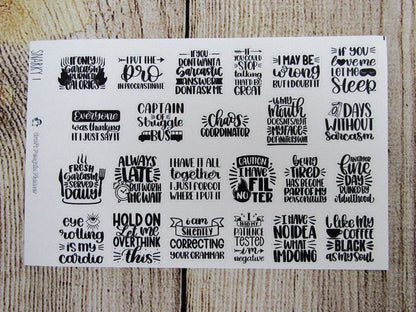 SNARKY 1
IF ONLY
SARCASM
BURNED
CALORIES
I PUT THE
pro
IN PROCRASTINATE
IF YOU
DON'T WANT A
Sarcastic
ANSWER
DON'T ASK ME
IF
YOU COULD
STOP
TALKING
THAT'D BE
GREAT
I MAY BE
wrong
BUT I DOUBT IT
IF YOU
love ME
LET ME
Sleep
Everyone
was thinking
IT I JUST SAY IT
CAPTAIN
OF A
Struggle
BUS
Chaos
COORDINATOR
WHAT MY
Mouth
DOESN'T SAY
MY FACE
DEFINITELY WILL
DAYS
WITHOUT
SARCASM
FRESH
SARCASM
SERVED
Daily
ALWAYS
LATE
BUT WORTH
THE WAIT
I HAVE IT ALL
together
I JUST FORGOT
WHERE I PUT IT
CAUTION
I HAVE
NO FILTER
BEING
TIRED
HAS BECOME
PART OF MY
personality
MY
BY
ADULTHOOD
eye
rolling
is my
cardio
HOLD ON
LET ME
OVERTHINK
this
I am
SILENTLY
CORRECTING
YOUR GRAMMAR
I HAD MY
PATIENCE
TESTED
I'm negative
I HAVE
NO IDEA
WHAT
I'M DOING
I LIKE MY
COFFEE
BLACK
AS MY SOUL